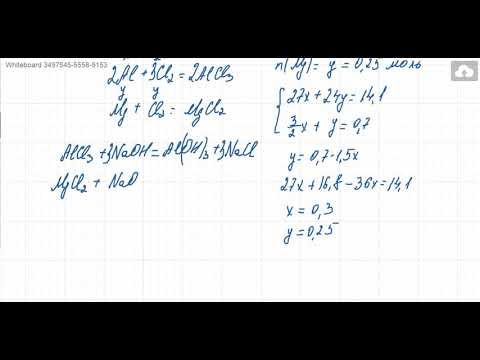 Whiteboard 3497545-5558-9153
2Al + 3Cl₂ = 2AlCl₃
y y
Mg + Cl₂ = MgCl₂
AlCl₃ + 3NaOH = Al(OH)₃ + 3NaCl
MgCl₂ + NaO
n(Mg) = y = 0,25 моль
27x + 24y = 14,1
3/2x + y = 0,7
y = 0,7 - 1,5x
27x + 16,8 - 36x = 14,1
x = 0,3
y = 0,25